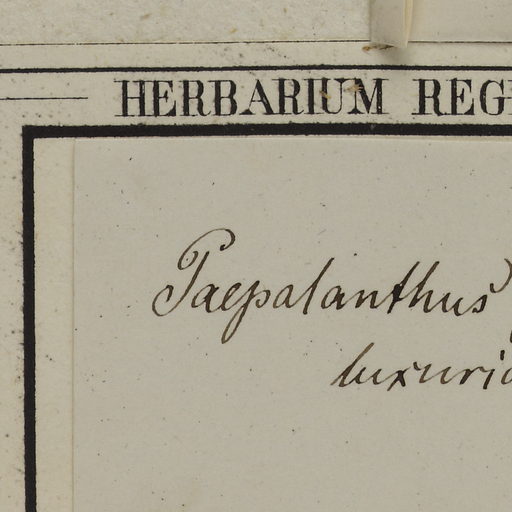 HERBARIUM REG
Paepalanthus
luxuria